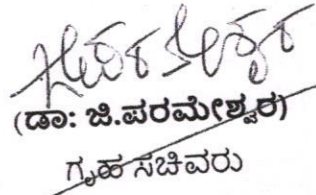 (ಡಾ: ಜಿ.ಪರಮೇಶ್ವರ)
ಗೃಹ ಸಚಿವರು